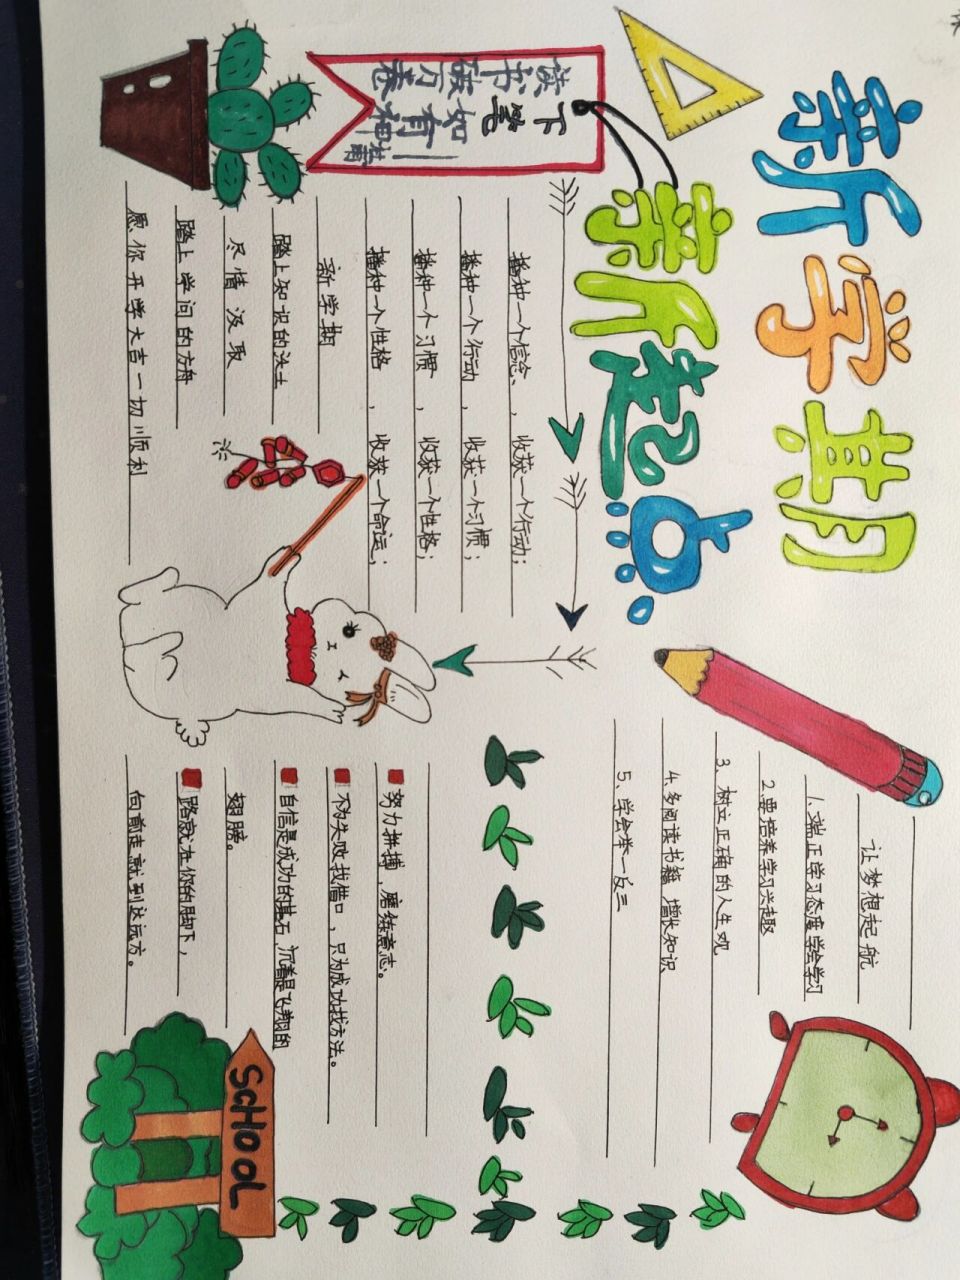 新学期
新起点
读书破万卷
下笔如有神
播种一个信念，收获一个行动；
播种一个行动，收获一个习惯；
播种一个习惯，收获一个性格；
播种一个性格，收获一个命运；
新学期
踏上知识的沃土
尽情汲取
踏上学问的方舟
愿你开学大吉一切顺利
让梦想起航
1.端正学习态度学会学习
2.要培养学习兴趣
3、树立正确的人生观
4.多阅读书籍 增长知识
5、学会举一反三
努力拼搏，磨练意志。
不为失败找借口，只为成功找方法。
自信是成功的基石，沉着是飞翔的
翅膀。
路就在你的脚下，
向前走就到达远方。
SCHOOL